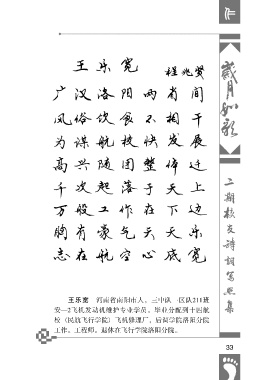 作
岁月如歌
二期校友诗词写照集
王乐宽
程兆贤
广汉洛阳两省间
风俗饮食不相干
为谋航校快发展
高兴随团整体迁
千次起落于天上
万般工作在下边
胸有豪气天天乐
志在航空心底宽
王乐宽 河南省南阳市人。三中队 区队211班
受一2飞机发动机维护专业学员。毕业分配到十四航
校(民航飞行学院)飞机修理厂，后到学院洛阳分院
工作。工程师。退休在飞行学院洛阳分院。
33